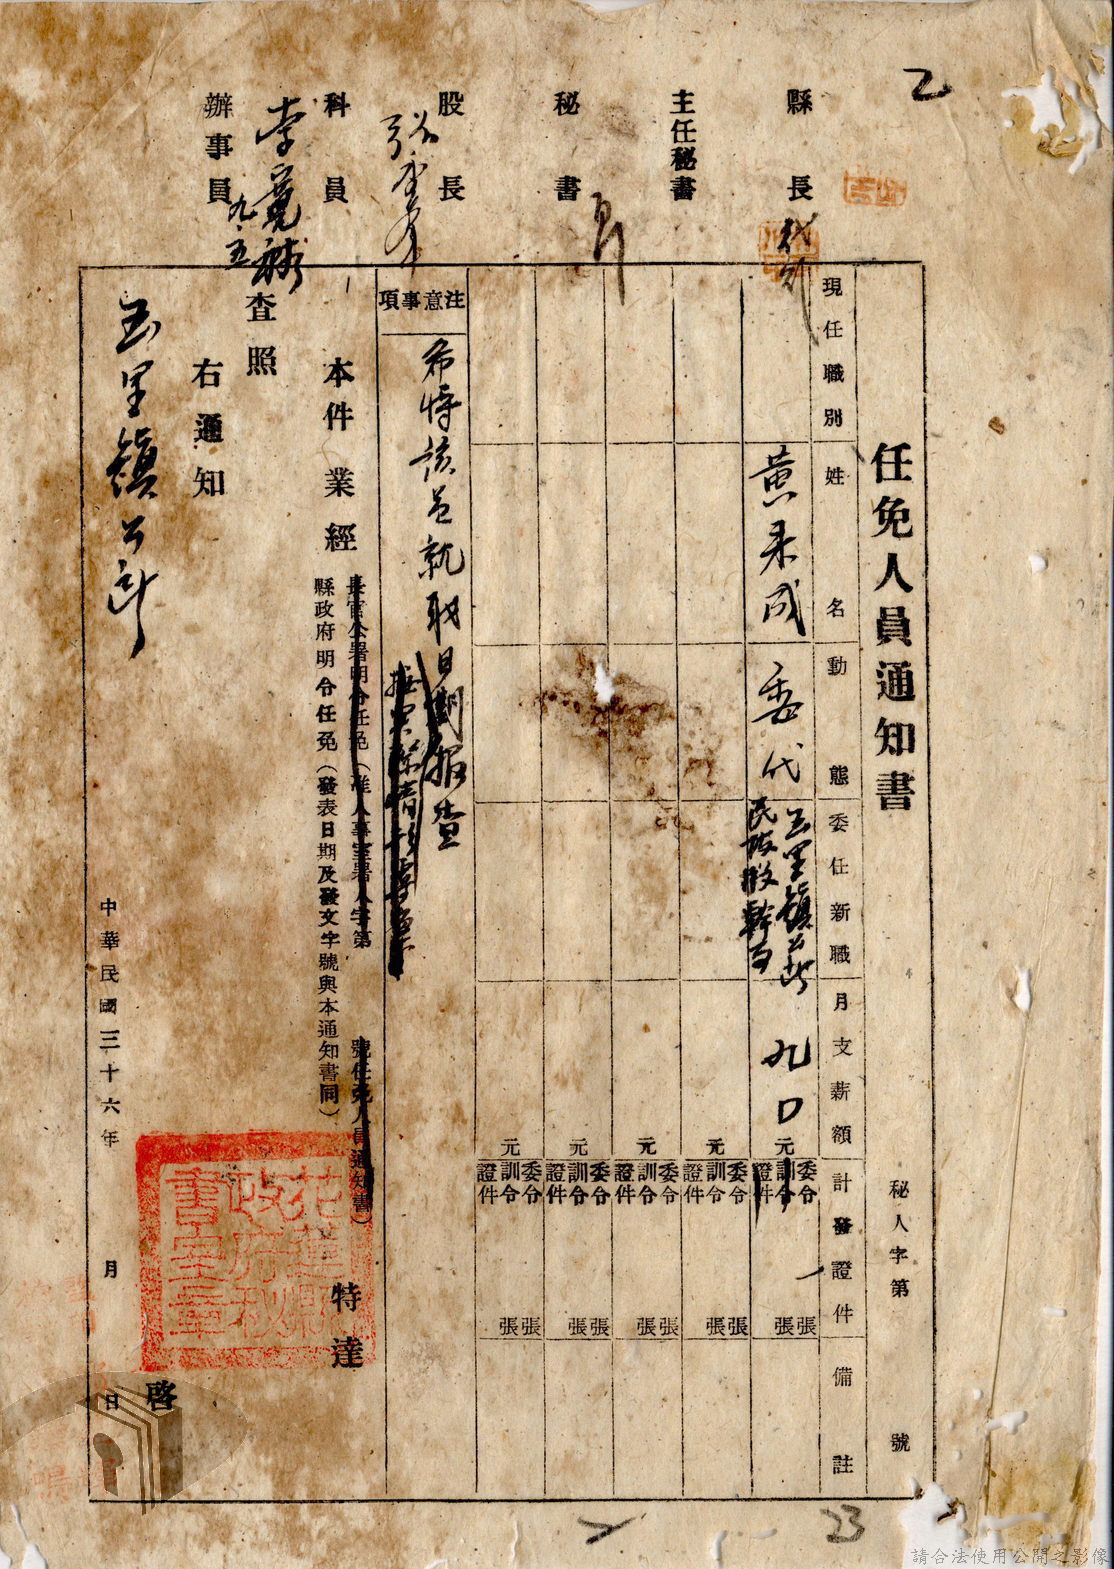 縣長
主任秘書
秘書
股長
科員
辦事員
九.五
任免人員通知書
秘人字第　號
現任職別
姓名
動態
委任新職
月支薪額
計發證件
備註
黃
成
委代
玉里鎮
民政股幹事
九〇元
委令
訓令
證件
一張
張
元
委令
訓令
證件
張
張
元
委令
訓令
證件
張
張
元
委令
訓令
證件
張
張
元
委令
訓令
證件
張
張
注意事項
希將該員就職日期報查
本件業經
長官公署明令任免（准人事室署人字第　號任免人員通知書）
縣政府明令任免（發表日期及發文字號與本通知書同）
特達
查照
右通知
玉里鎮公所
啓
中華民國三十六年　月　日
花蓮縣政府秘書室章
2
23
請合法使用公開之影像